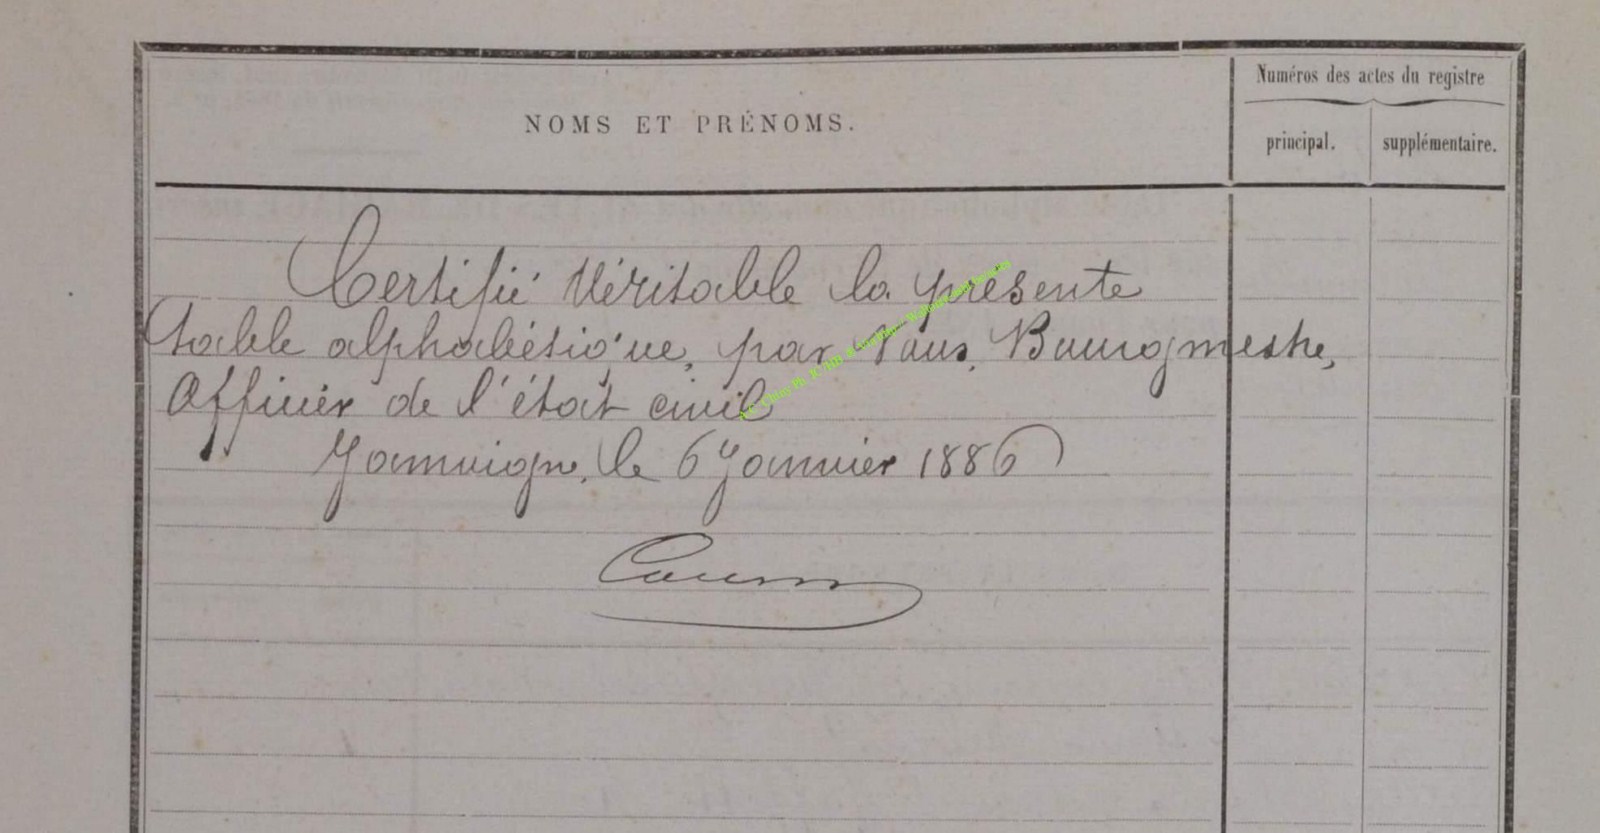 Numéros des actes du registre
NOMS ET PRÉNOMS.
principal. supplémentaire.
Certifié véritable la présente
table alphabétique, par Nous, Bourgmestre,
Officier de l'état civil
Jamoigne, le 6 Janvier 1886